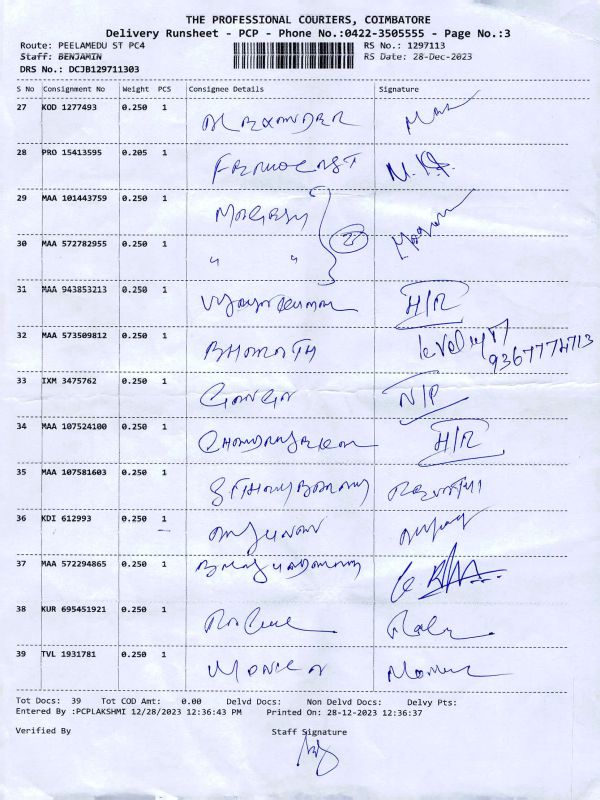 THE PROFESSIONAL COURIERS, COIMBATORE
Delivery Runsheet - PCP - Phone No.:0422-3505555 - Page No.:3
Route: PEELAMEDU ST PC4 RS No.: 1297113
Staff: BENJAMIN RS Date: 28-Dec-2023
DRS No.: DCJB129711303
S No Consignment No Weight PCS Consignee Details Signature
27 KOD 1277493 0.250 1 ALEXANDER
28 PRO 15413595 0.205 1
29 MAA 101443759 0.250 1
30 MAA 572782955 0.250 1 " "
31 MAA 943853213 0.250 1 Vijayakumar H/R
32 MAA 573509812 0.250 1 BHARATH 9367774713
33 IXM 3475762 0.250 1 Ganga N/P
34 MAA 107524100 0.250 1 CHANDRASEKAR H/R
35 MAA 107581603 0.250 1 REVATHI
36 KDI 612993 0.250 1
37 MAA 572294865 0.250 1
38 KUR 695451921 0.250 1
39 TVL 1931781 0.250 1
Tot Docs: 39 Tot COD Amt: 0.00 Delvd Docs: Non Delvd Docs: Delvy Pts:
Entered By :PCPLAKSHMI 12/28/2023 12:36:43 PM Printed On: 28-12-2023 12:36:37
Verified By Staff Signature